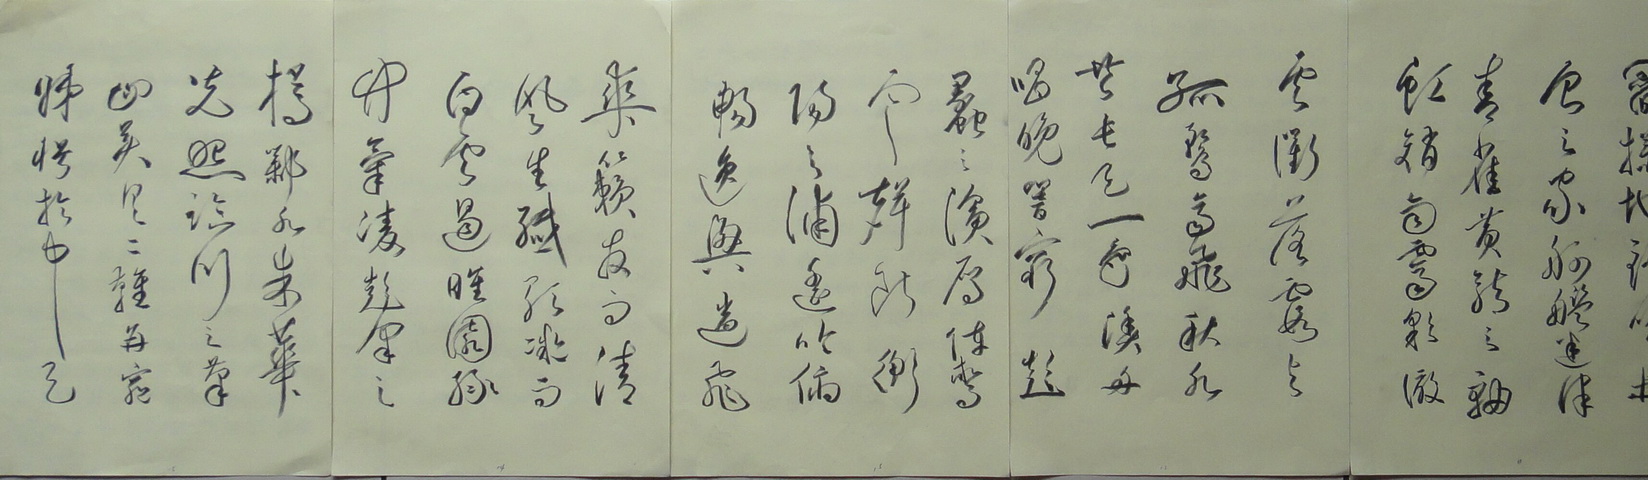 閭撲地鍾鳴鼎
食之家舸艦迷津
青雀黃龍之舳
虹銷雨霽彩徹
雲衢落霞與
孤鶩齊飛秋水
共長天一色漁舟
唱晚響窮彭
蠡之濱雁陣驚
寒聲斷衡
陽之浦遙吟俯
暢逸興遄飛
爽籟發而清
風生纖歌凝而
白雲遏睢園綠
竹氣凌彭澤之
樽鄴水朱華
光照臨川之筆
四美具二難并窮
睇眄於中天